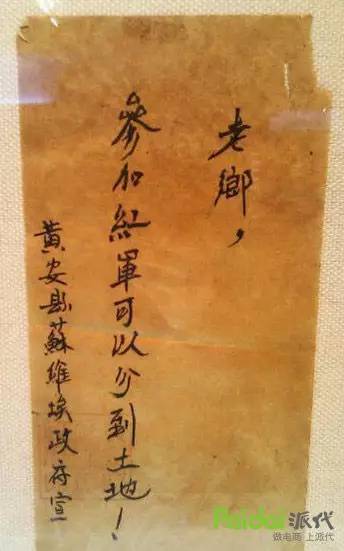 老鄉，
參加紅軍可以分到土地！
黃安县蘇維埃政府宣
Paidai派代
做电商 上派代